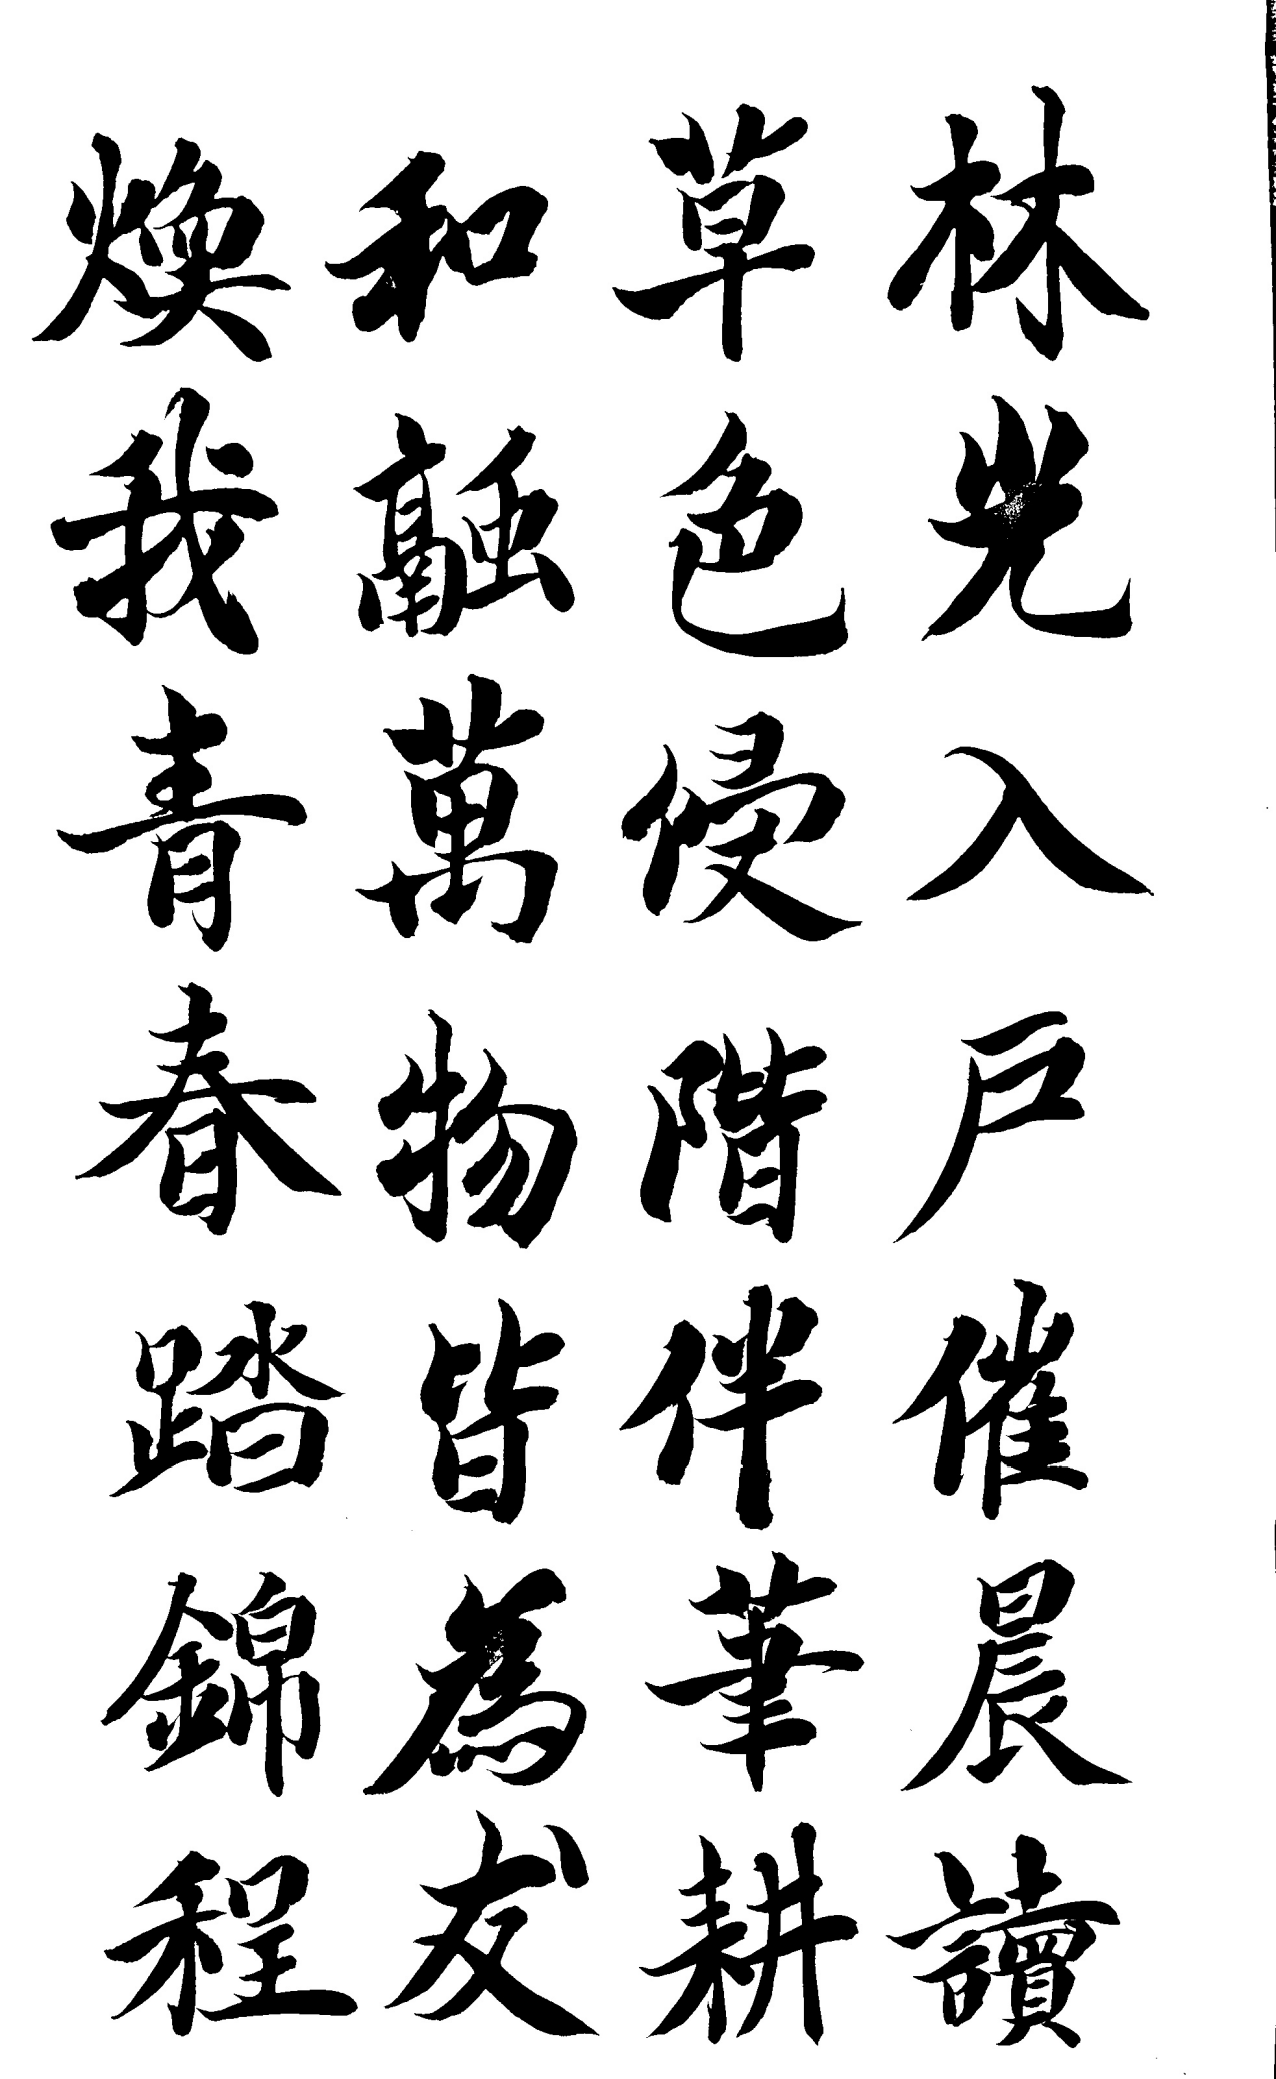 林光入戶催晨讀
草色侵階伴筆耕
和融萬物皆為友
煥我青春踏錦程